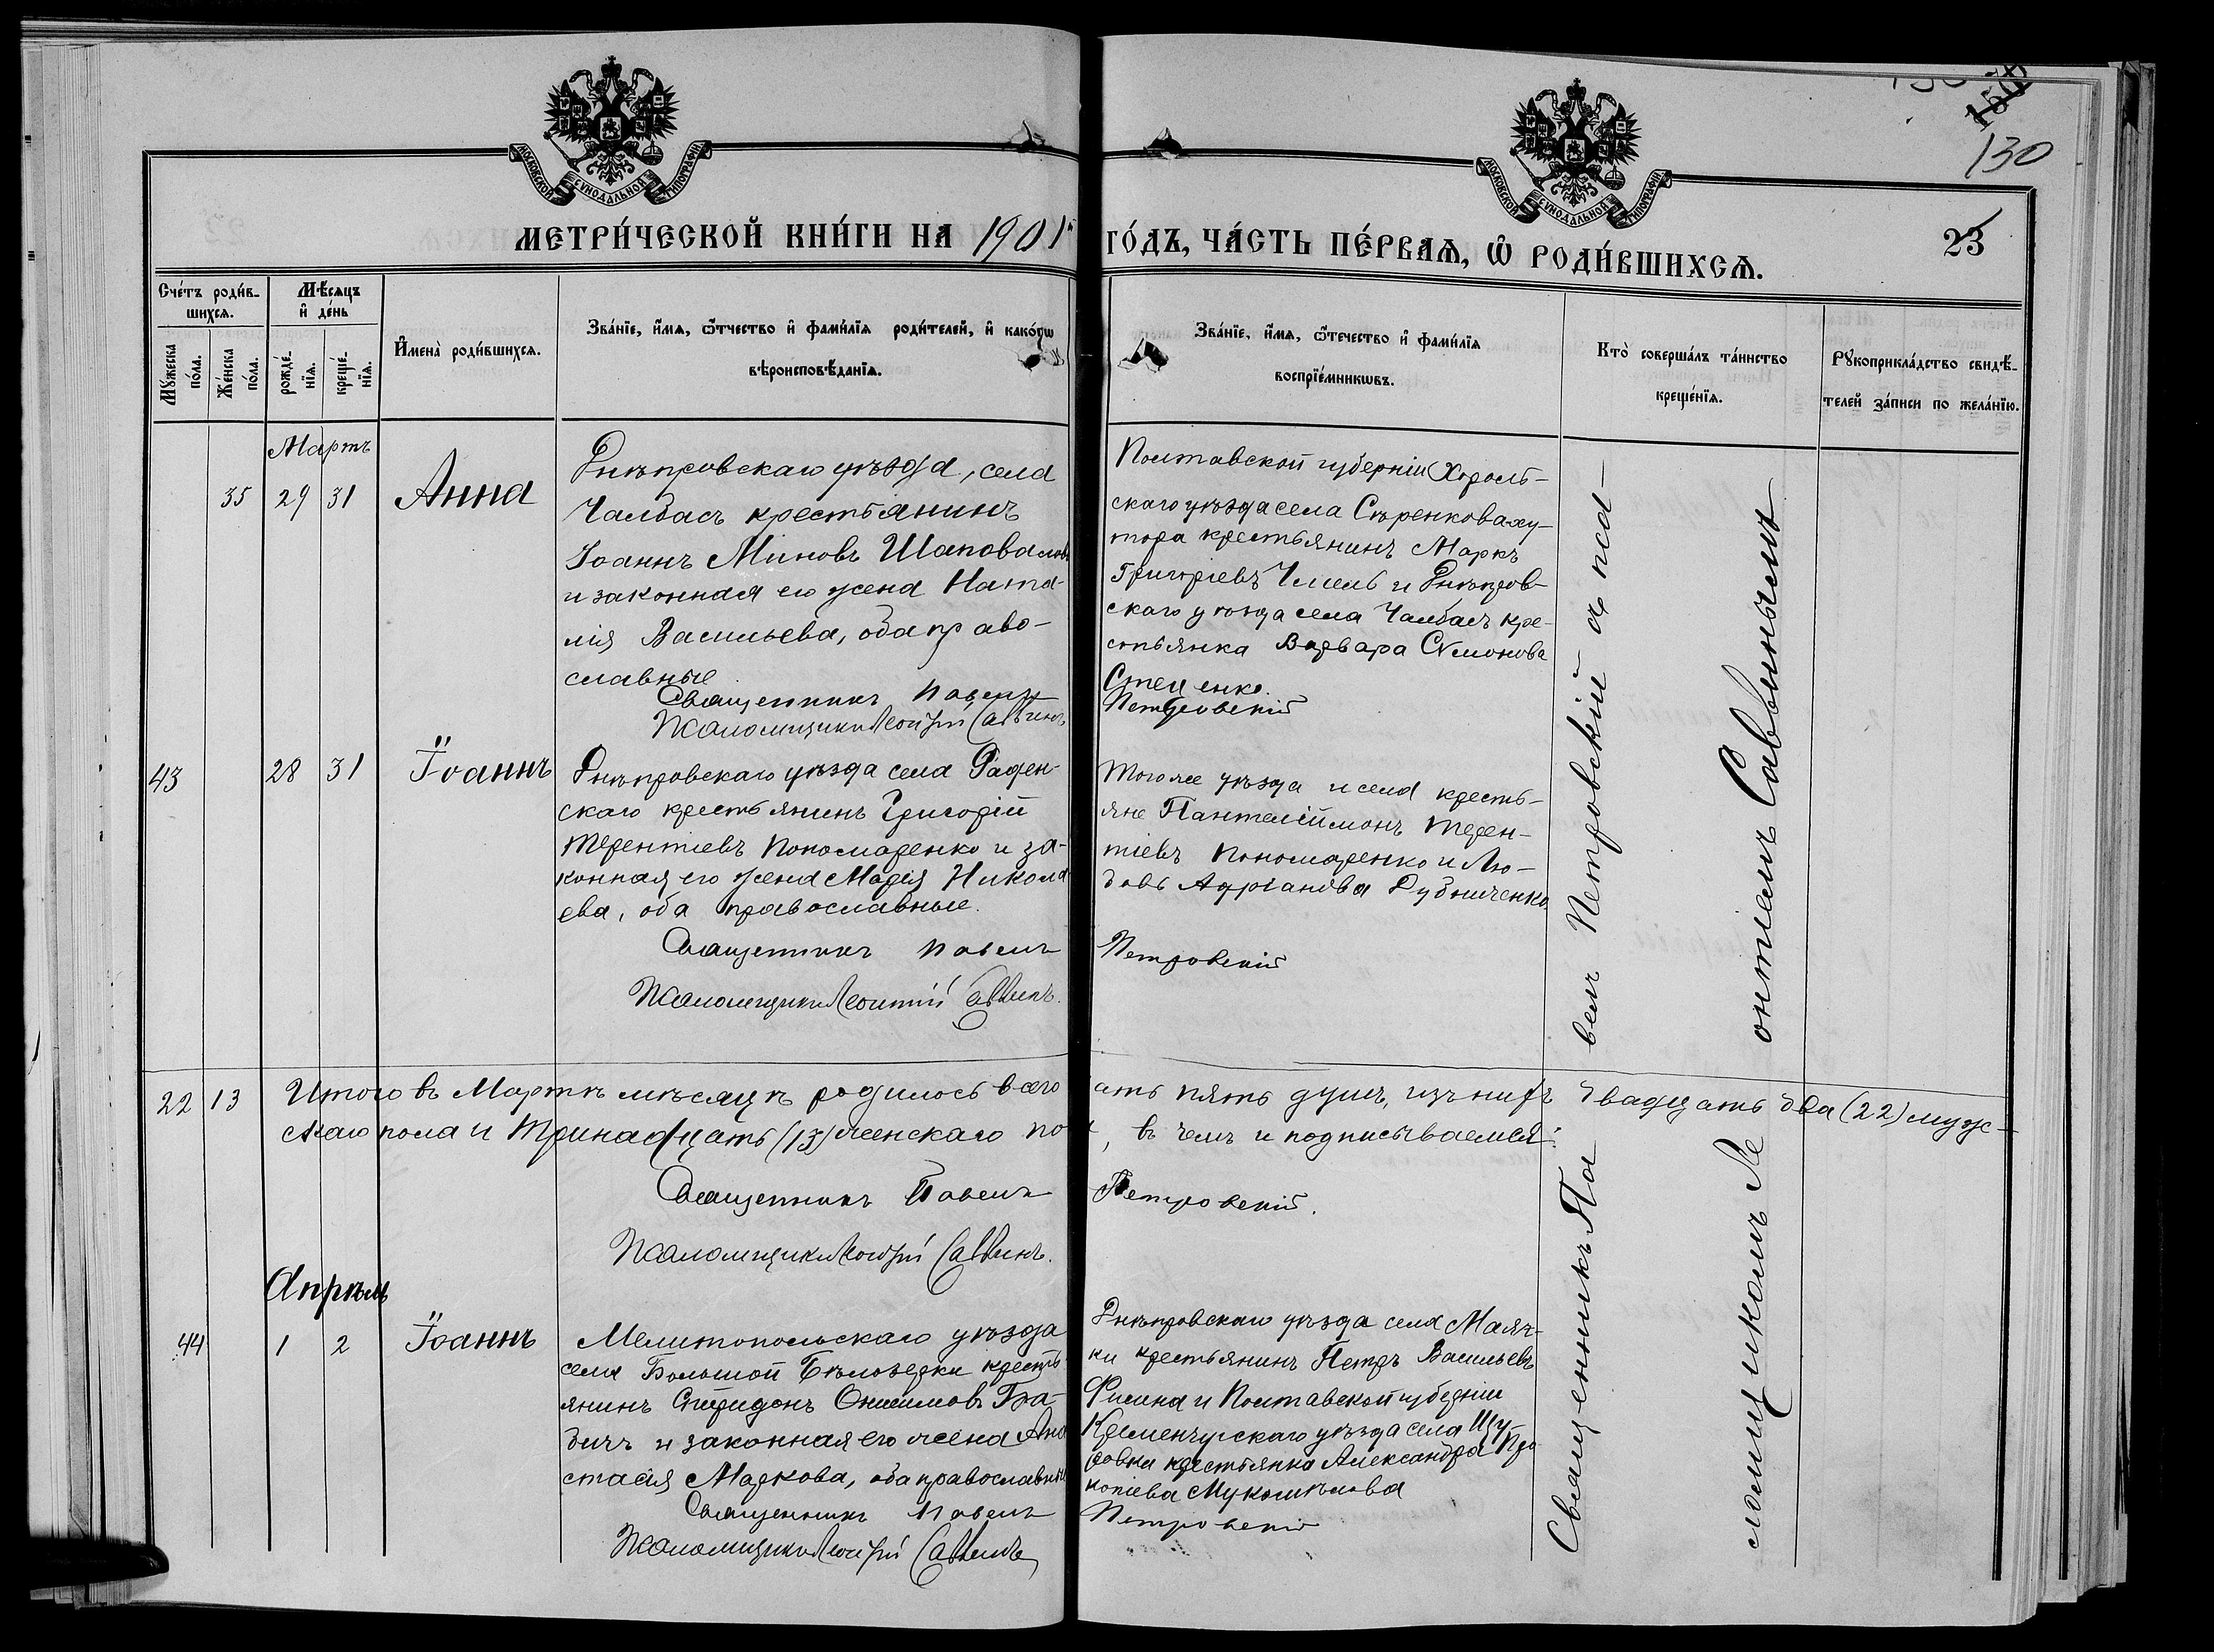 МОСКОВСКОЙ СѴНОДАЛЬНОЙ ТИПОГРАФІИ
МОСКОВСКОЙ СѴНОДАЛЬНОЙ ТИПОГРАФІИ
130
МЕТРИ́ЧЕСКОЙ КНИ́ГИ НА 1901й
ГО́ДЪ, ЧА́СТЬ ПЕ́РВАѦ, Ѡ҆ РОДИ́ВШИХСѦ.
23
Сче́тъ роди́в-
шихсѧ.
Мѣ́сѧцъ
и҆ де́нь
Мꙋ́жеска
по́ла.
Же́нска
по́ла.
рожде́-
нїѧ.
креще́-
нїѧ.
И҆мена̀ роди́вшихсѧ.
Зва́нїе, и҆́мѧ, ѻ҆́тчество и҆ фами́лїѧ роди́телей, и҆ како́гѡ
вѣроисповѣ́данїѧ.
Зва́нїе, и҆́мѧ, ѻ҆́течество и҆ фами́лїѧ
воспрїе́мникѡвъ.
Кто̀ соверша́лъ та́инство
креще́нїѧ.
Рꙋкоприкла́дство свидѣ́-
телей за́писи по жела́нїю.
Мартъ
35 29 31 Анна
Днѣпровскаго уѣзда, села
Чалбасъ крестьянинъ
Іоаннъ Миновъ Шаповаловъ
и законная его жена Ната-
лія Васильева, оба право-
славные
Священникъ Павелъ
Псаломщикъ Леонтій Саввинъ
Полтавской губерніи Хороль-
скаго уѣзда села Сѣренкова ху-
тора крестьянинъ Маркъ
Григоріевъ Чмель и Днѣпров-
скаго уѣзда села Чалбасъ кре-
стьянка Варвара Сѵмонова
Стеценко.
Петровскій
43 28 31 Іоаннъ
Днѣпровскаго уѣзда села Раден-
скаго крестьянинъ Григорій
Терентіевъ Пономаренко и за-
конная его жена Марія Никола
ева, оба православные.
Священникъ Павелъ
Псаломщикъ Леонтій Саввинъ.
Того же уѣзда и села кресть-
яне Пантелеймонъ Терен-
тіевъ Пономаренко и Лю-
бовь Адріанова Дубниченко.
Петровскій
22 13 Итого въ Мартѣ мѣсяцѣ родилось всего
ать пять душъ, изъ нихъ двадцать два (22) муж-
скаго пола и тринадцать (13) женскаго по
, въ чемъ и подписываемся:
Священникъ Павелъ
Петровскій.
Псаломщикъ Леонтій Саввинъ.
Апрѣль
44 1 2 Іоаннъ
Мелитопольскаго уѣзда
села Большой Бѣлозерки кресть-
янинъ Спиридонъ Онисимовъ Гра-
бичъ и законная его жена Ана
стасія Маркова, оба православные
Священникъ Павелъ
Псаломщикъ Леонтій Саввинъ
Днѣпровскаго уѣзда села Маяч-
ки крестьянинъ Петръ Васильевъ
Филина и Полтавской губерніи
Кременчугскаго уѣзда села Щу-
ровки крестьянка Александра Про-
копіева
Петровскій
Священникъ Павелъ Петровскій съ пса-
ломщикомъ Леонтіемъ Саввинымъ